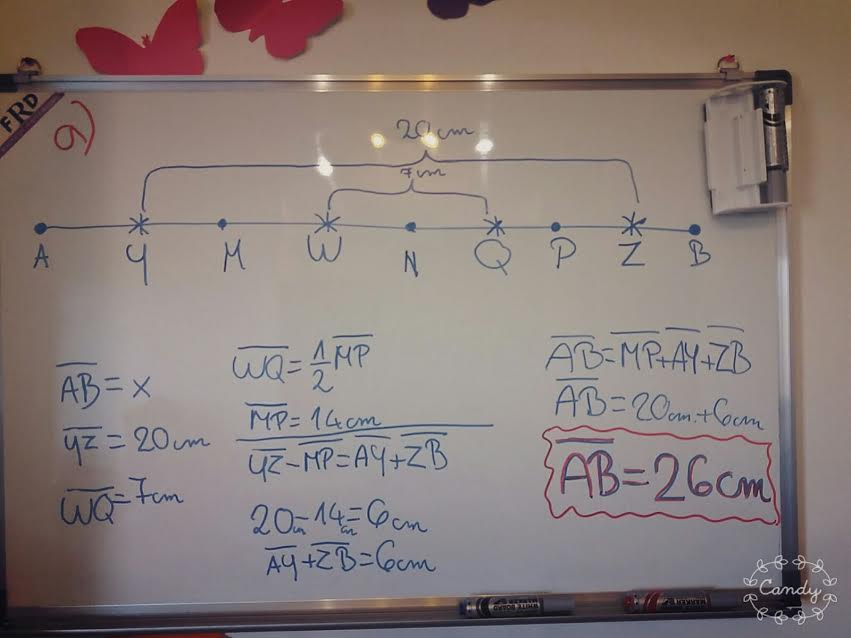 FRD
a)
20cm
7cm
A Y M W N Q P Z B
AB = x
YZ = 20cm
WQ = 7cm
WQ = 1/2 MP
MP = 14cm
YZ - MP = AY + ZB
20cm - 14cm = 6cm
AY + ZB = 6cm
AB = MP + AY + ZB
AB = 20cm + 6cm
AB = 26cm
WHITE BOARD MARKER
MARKER
Candy